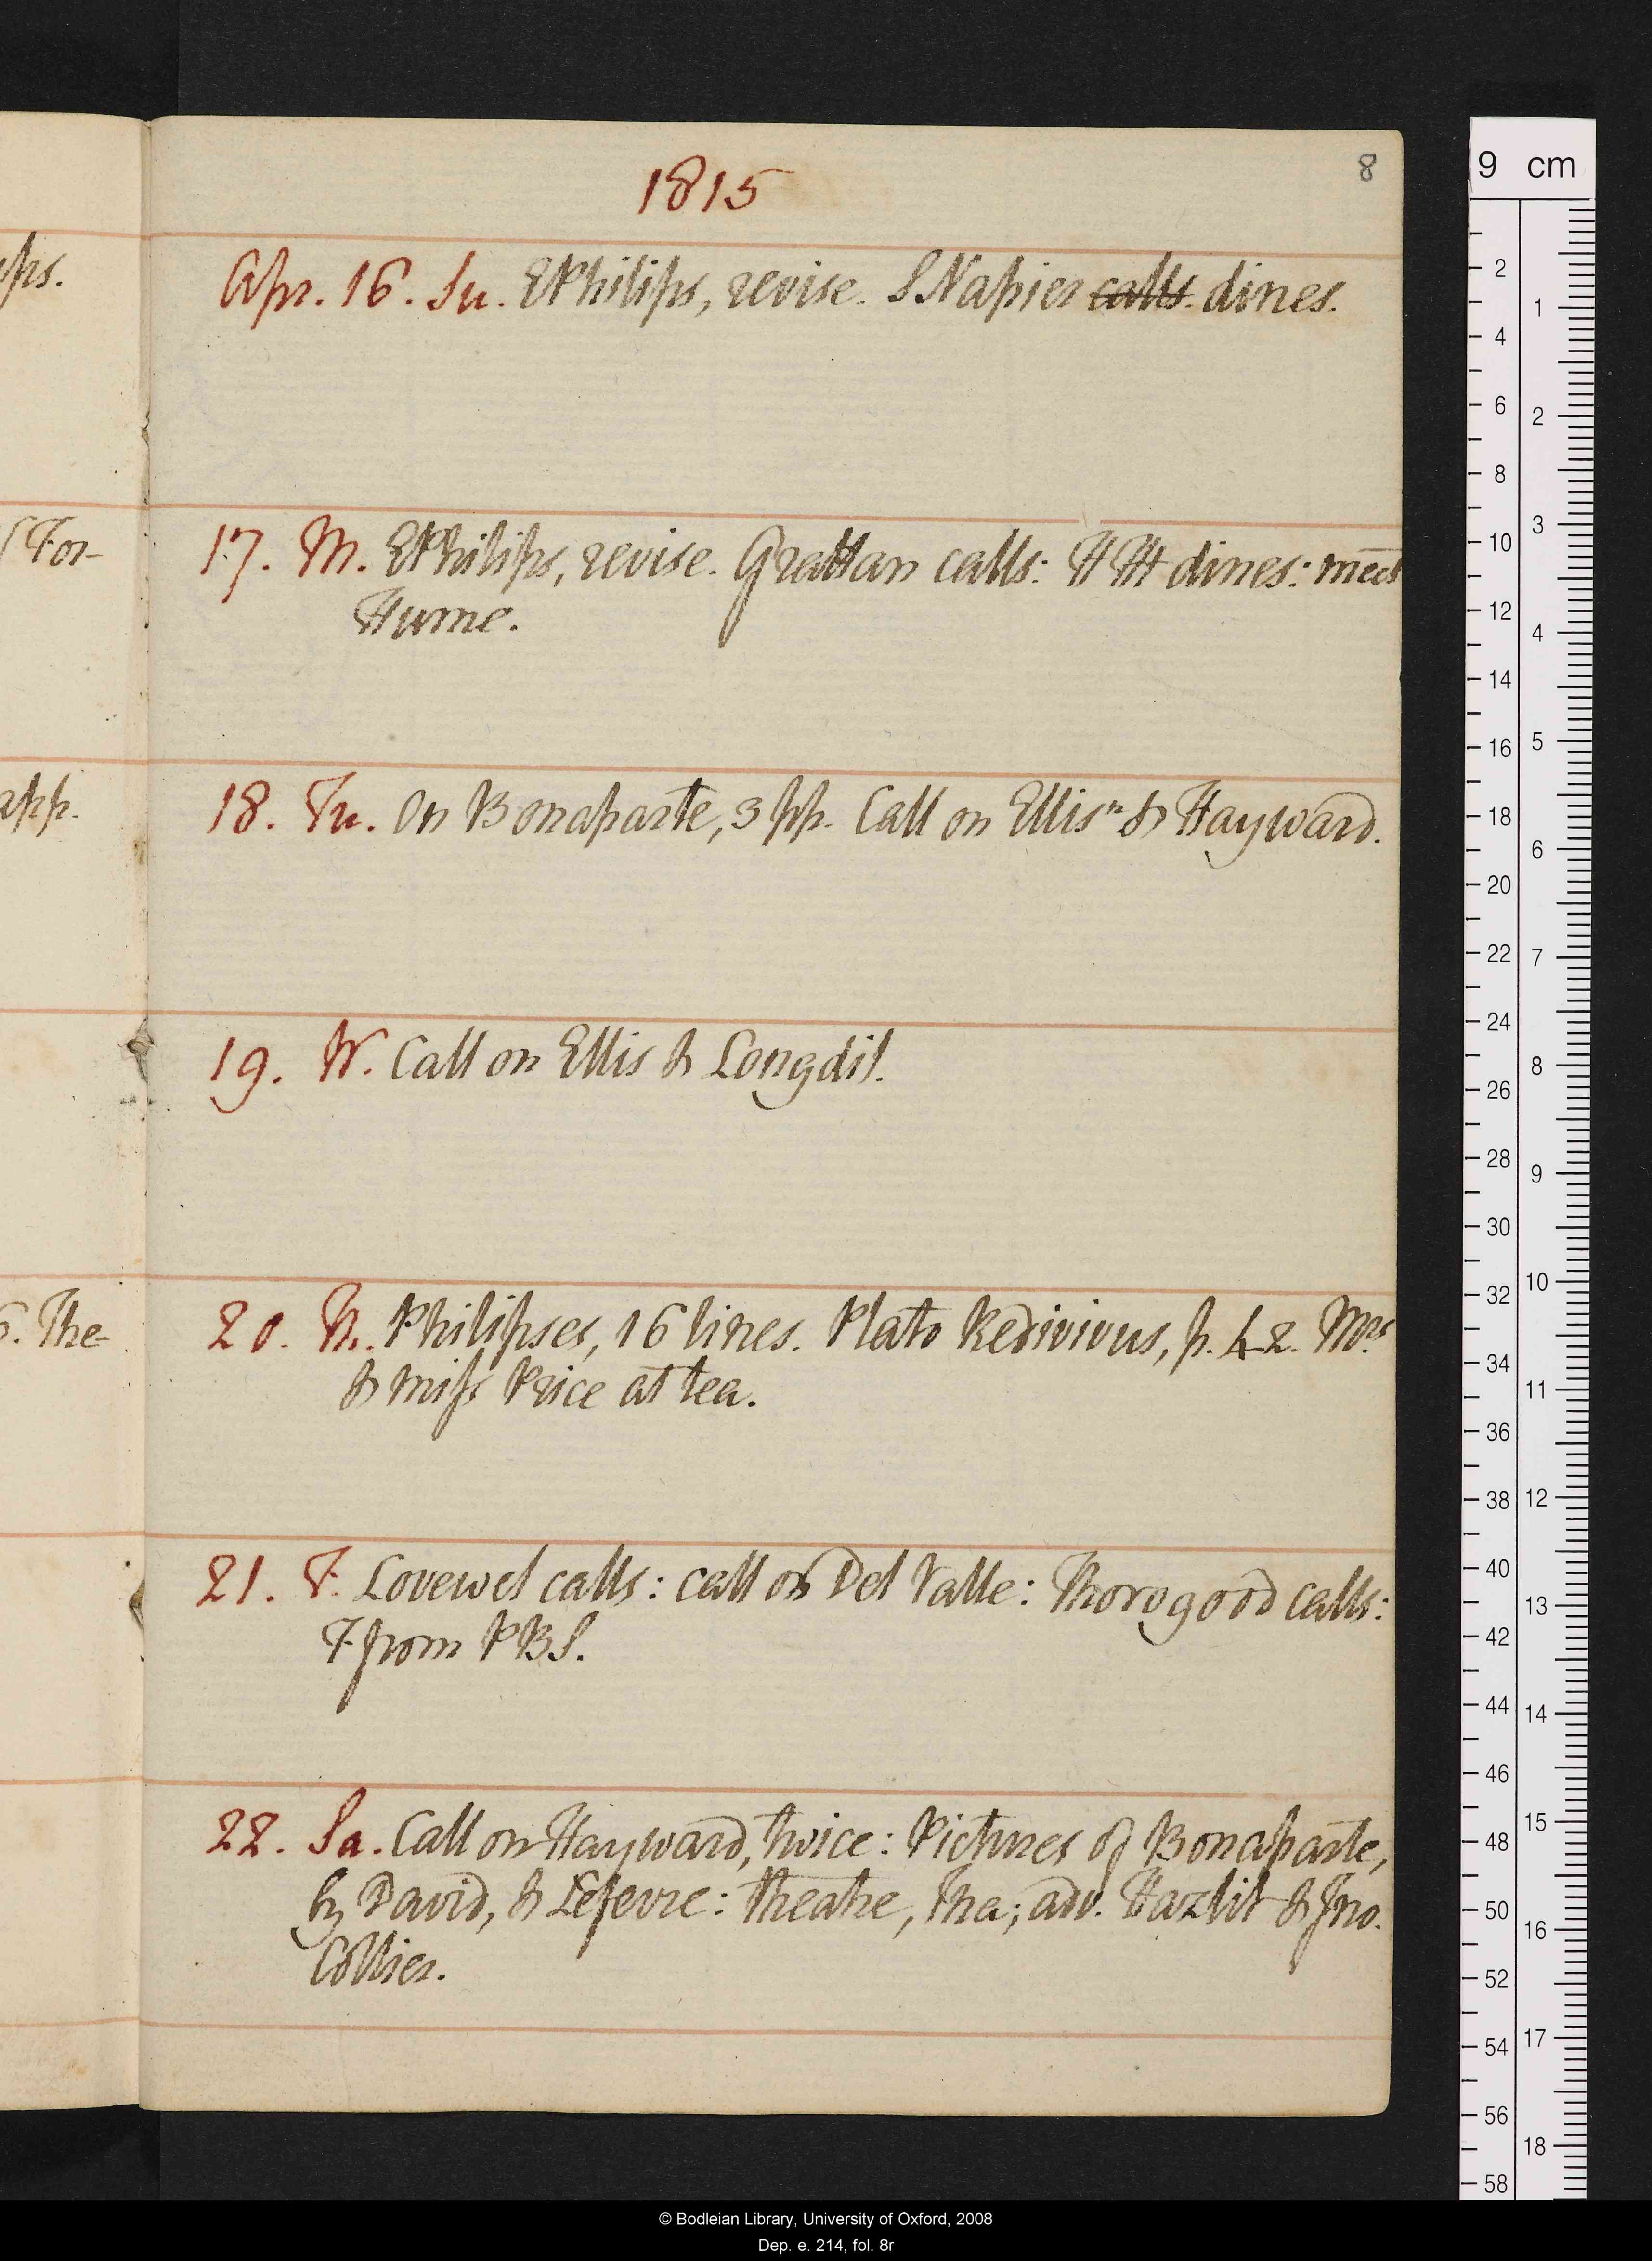 1815
8
Apr. 16. Su. E Philips, revise. S Napier calls. dines.
17. M. E Philips, revise. Grattan calls: H H dines: meet
Hume.
18. Tu. On Bonaparte, 3 pp. Call on Ellisⁿ & Hayward.
19. W. Call on Ellis & Longdil.
20. Th. Philipses, 16 lines. Plato Redivivus, p. 42. Mrs
& miss Price at tea.
21. F. Lovewel calls: call on Del Valle: Thorogood calls:
F from PBS.
22. Sa. Call on Hayward, twice: Pictures of Bonaparte,
by David, & Lefevre: theatre, ; adv. Hazlit & Jno.
Collier.
ps.
For-
app.
6. The-
9 cm
2
4
6
8
10
12
14
16
18
20
22
24
26
28
30
32
34
36
38
40
42
44
46
48
50
52
54
56
58
1
2
3
4
5
6
7
8
9
10
11
12
13
14
15
16
17
18
© Bodleian Library, University of Oxford, 2008
Dep. e. 214, fol. 8r